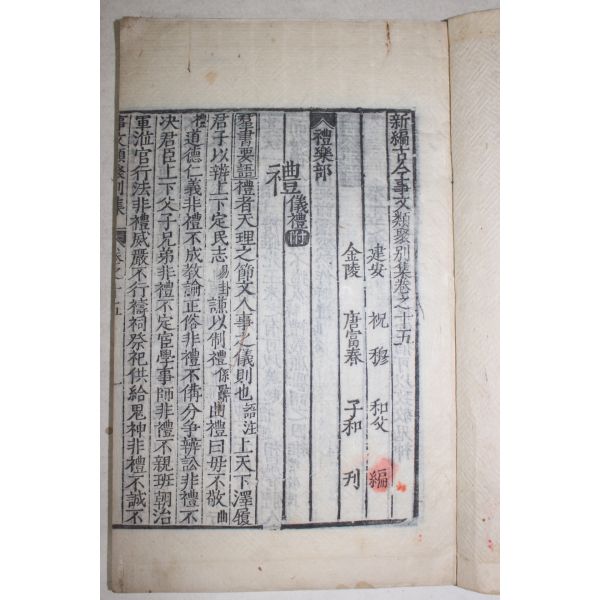 新編古今事文類聚別集卷之十五
建安 祝穆 和父 編
金陵 唐富春 子和 刊
禮樂部
禮 儀禮附
羣書要語禮者天理之節文人事之儀則也語注上天下澤履
君子以辨上下定民志易卦謙以制禮係辭曲禮曰毋不敬曲
禮道德仁義非禮不成敎訓正俗非禮不備分爭辨訟非禮不
决君臣上下父子兄弟非禮不定宦學事師非禮不親班朝治
軍涖官行法非禮威嚴不行禱祠祭祀供給鬼神非禮不誠不
事文類聚別集 卷之十五